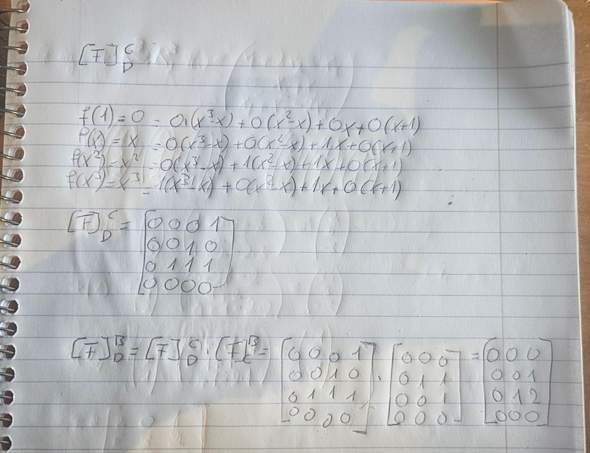 [F]^C_D
f(1) = 0 = 0(x³-x)+0(x²-x)+0x+0(x+1)
f(x) = x = 0(x³-x)+0(x²-x)+1x+0(x+1)
f(x²)=x² = 0(x³-x)+1(x²-x)+1x+0(x+1)
f(x³)=x³ = 1(x³-x)+0(x²-x)+1x+0(x+1)
[F]^C_D = [0 0 0 1
0 0 1 0
0 1 1 1
0 0 0 0]
[F]^B_D = [F]^C_D · [F]^B_C = [0 0 0 1 · [0 0 0 = [0 0 0
0 0 1 0 0 1 1 0 0 1
0 1 1 1 0 0 1 0 1 2
0 0 0 0] 0 0 0] 0 0 0]